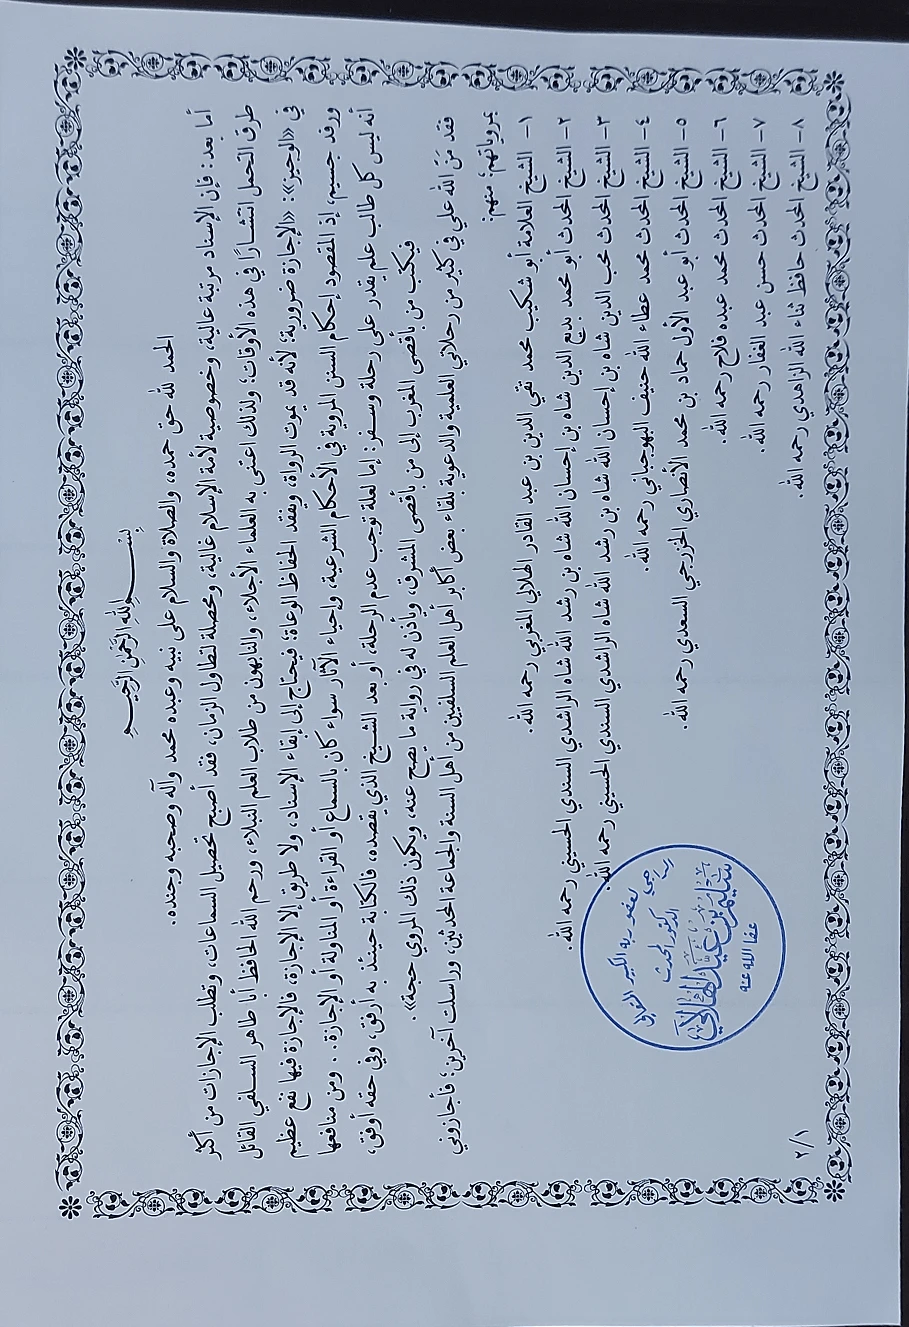 بسم الله الرحمن الرحيم
الحمد لله حق حمده، والصلاة والسلام على نبيه وعبده محمد وآله وصحبه وجنده.
أما بعد: فإن الإسناد مرتبة عالية، وخصوصية لأمة الإسلام غالية، ومحصلة لتطاول الزمان، فقد أصبح تحصيل السماعات، وتطلب الإجازات من أكثر
طرق التحمل انتشارًا في هذه الأوقات؛ ولذلك اعتنى به العلماء الأجلاء، والنابهون من طلاب العلم النبلاء، ورحم الله الحافظ أبا طاهر السلفي القائل
في «الوجيز»: «الإجازة ضرورية؛ لأنه قد يموت الرواة، ويفقد الحفاظ الوعاة؛ فيحتاج إلى إبقاء الإسناد، ولا طريق إلا الإجازة، فالإجازة فيها نفع عظيم
ورفد جسيم؛ إذ المقصود إحكام السنن المروية في الأحكام الشرعية، وإحياء الآثار سواء كان بالسماع أو القراءة أو المناولة أو الإجازة.. ومن منافعها
أنه ليس كل طالب علم يقدر على رحلة وسفر: إما لعلة توجب عدم الرحلة، أو بعد الشيخ الذي يقصده، فالكتابة حينئذ به أرفق، وفي حقه أوفق،
فيكتب من بأقصى المغرب إلى من بأقصى المشرق، ويأذن له في رواية ما يصح عنه، ويكون ذلك المروي حجة».
فقد مَنَّ الله علي في كثير من رحلاتي العلمية والدعوية بلقاء بعض أكابر أهل العلم السلفيين من أهل السنة والجماعة المحدثين، وراسلت آخرين؛ فأجازوني
بمروياتهم؛ منهم:
١- الشيخ العلامة أبو شكيب محمد تقي الدين بن عبد القادر الهلالي المغربي رحمه الله.
٢- الشيخ المحدث أبو محمد بديع الدين شاه بن إحسان الله شاه بن رشد الله شاه الراشدي السندي الحسيني رحمه الله.
٣- الشيخ المحدث محب الدين شاه بن إحسان الله شاه بن رشد الله شاه الراشدي السندي الحسيني رحمه الله.
٤- الشيخ المحدث محمد عطاء الله حنيف البهوجياني رحمه الله.
٥- الشيخ المحدث أبو عبد الأول حماد بن محمد الأنصاري الخزرجي السعدي رحمه الله.
٦- الشيخ المحدث محمد عبده فلاح رحمه الله.
٧- الشيخ المحدث حسن عبد الغفار رحمه الله.
٨- الشيخ المحدث حافظ ثناء الله الزاهدي رحمه الله.
لعفو ربه الكبير المتعال
الدكتور المحدث
سليم بن عيد الهلالي
عفا الله عنه
٢/١